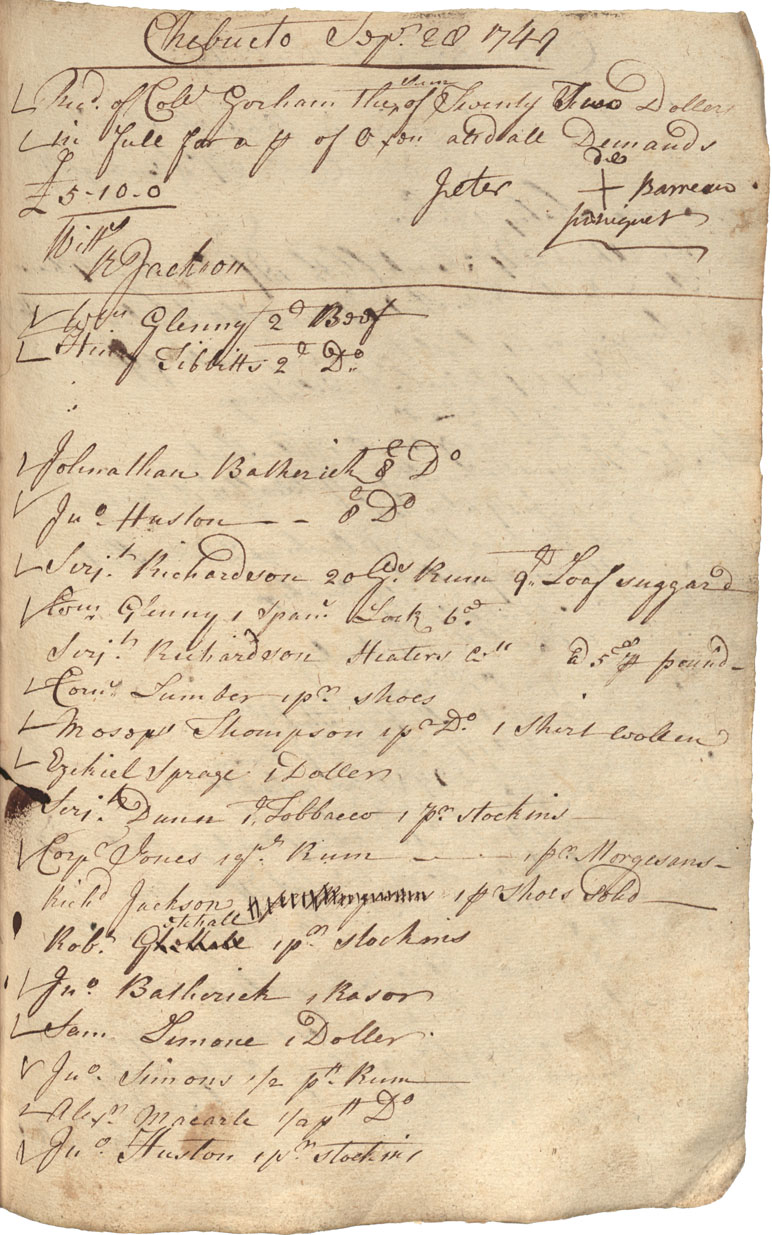 Chebucto Sepr. 28 1749
Recd. of Coll. Gorham the sum of Twenty Two Dollers
in full for a pr of Oxon and all Demands
£ 5-10-0
Peter + Barreau
Witts
R Jackson
Wm Glenny 2d Beef
Tibbitts 2d Do.
Johnathan Batherick 8d Do
Jno. Huston -- 8d Do
Serjt. Richardson 20 Gs. Rum Loaf suggar
Corn. Glenny 1 Spaw. Lock 6d
Serjt. Richardson Heaters pound
Corn. Lumber 1 pr shoes
Thompson 1 pr Do. 1 Shirt wollen
Ezekiel Sprage 1 Doller
Serjt. Dunn Tobbacco 1 pr stockins
Corpr. Jones 1 qrt Rum 1 pr Morgesans
Richd Jackson 1 p shoes sold
Robt. 1 pr stockins
Jno. Batherick 1 Rasor
Sam Limone 1 Doller
Jno. Simons 1/2 pt Rum
Alexr Macarle 1/2 pt Do
Jno. Huston 1 pr stockins